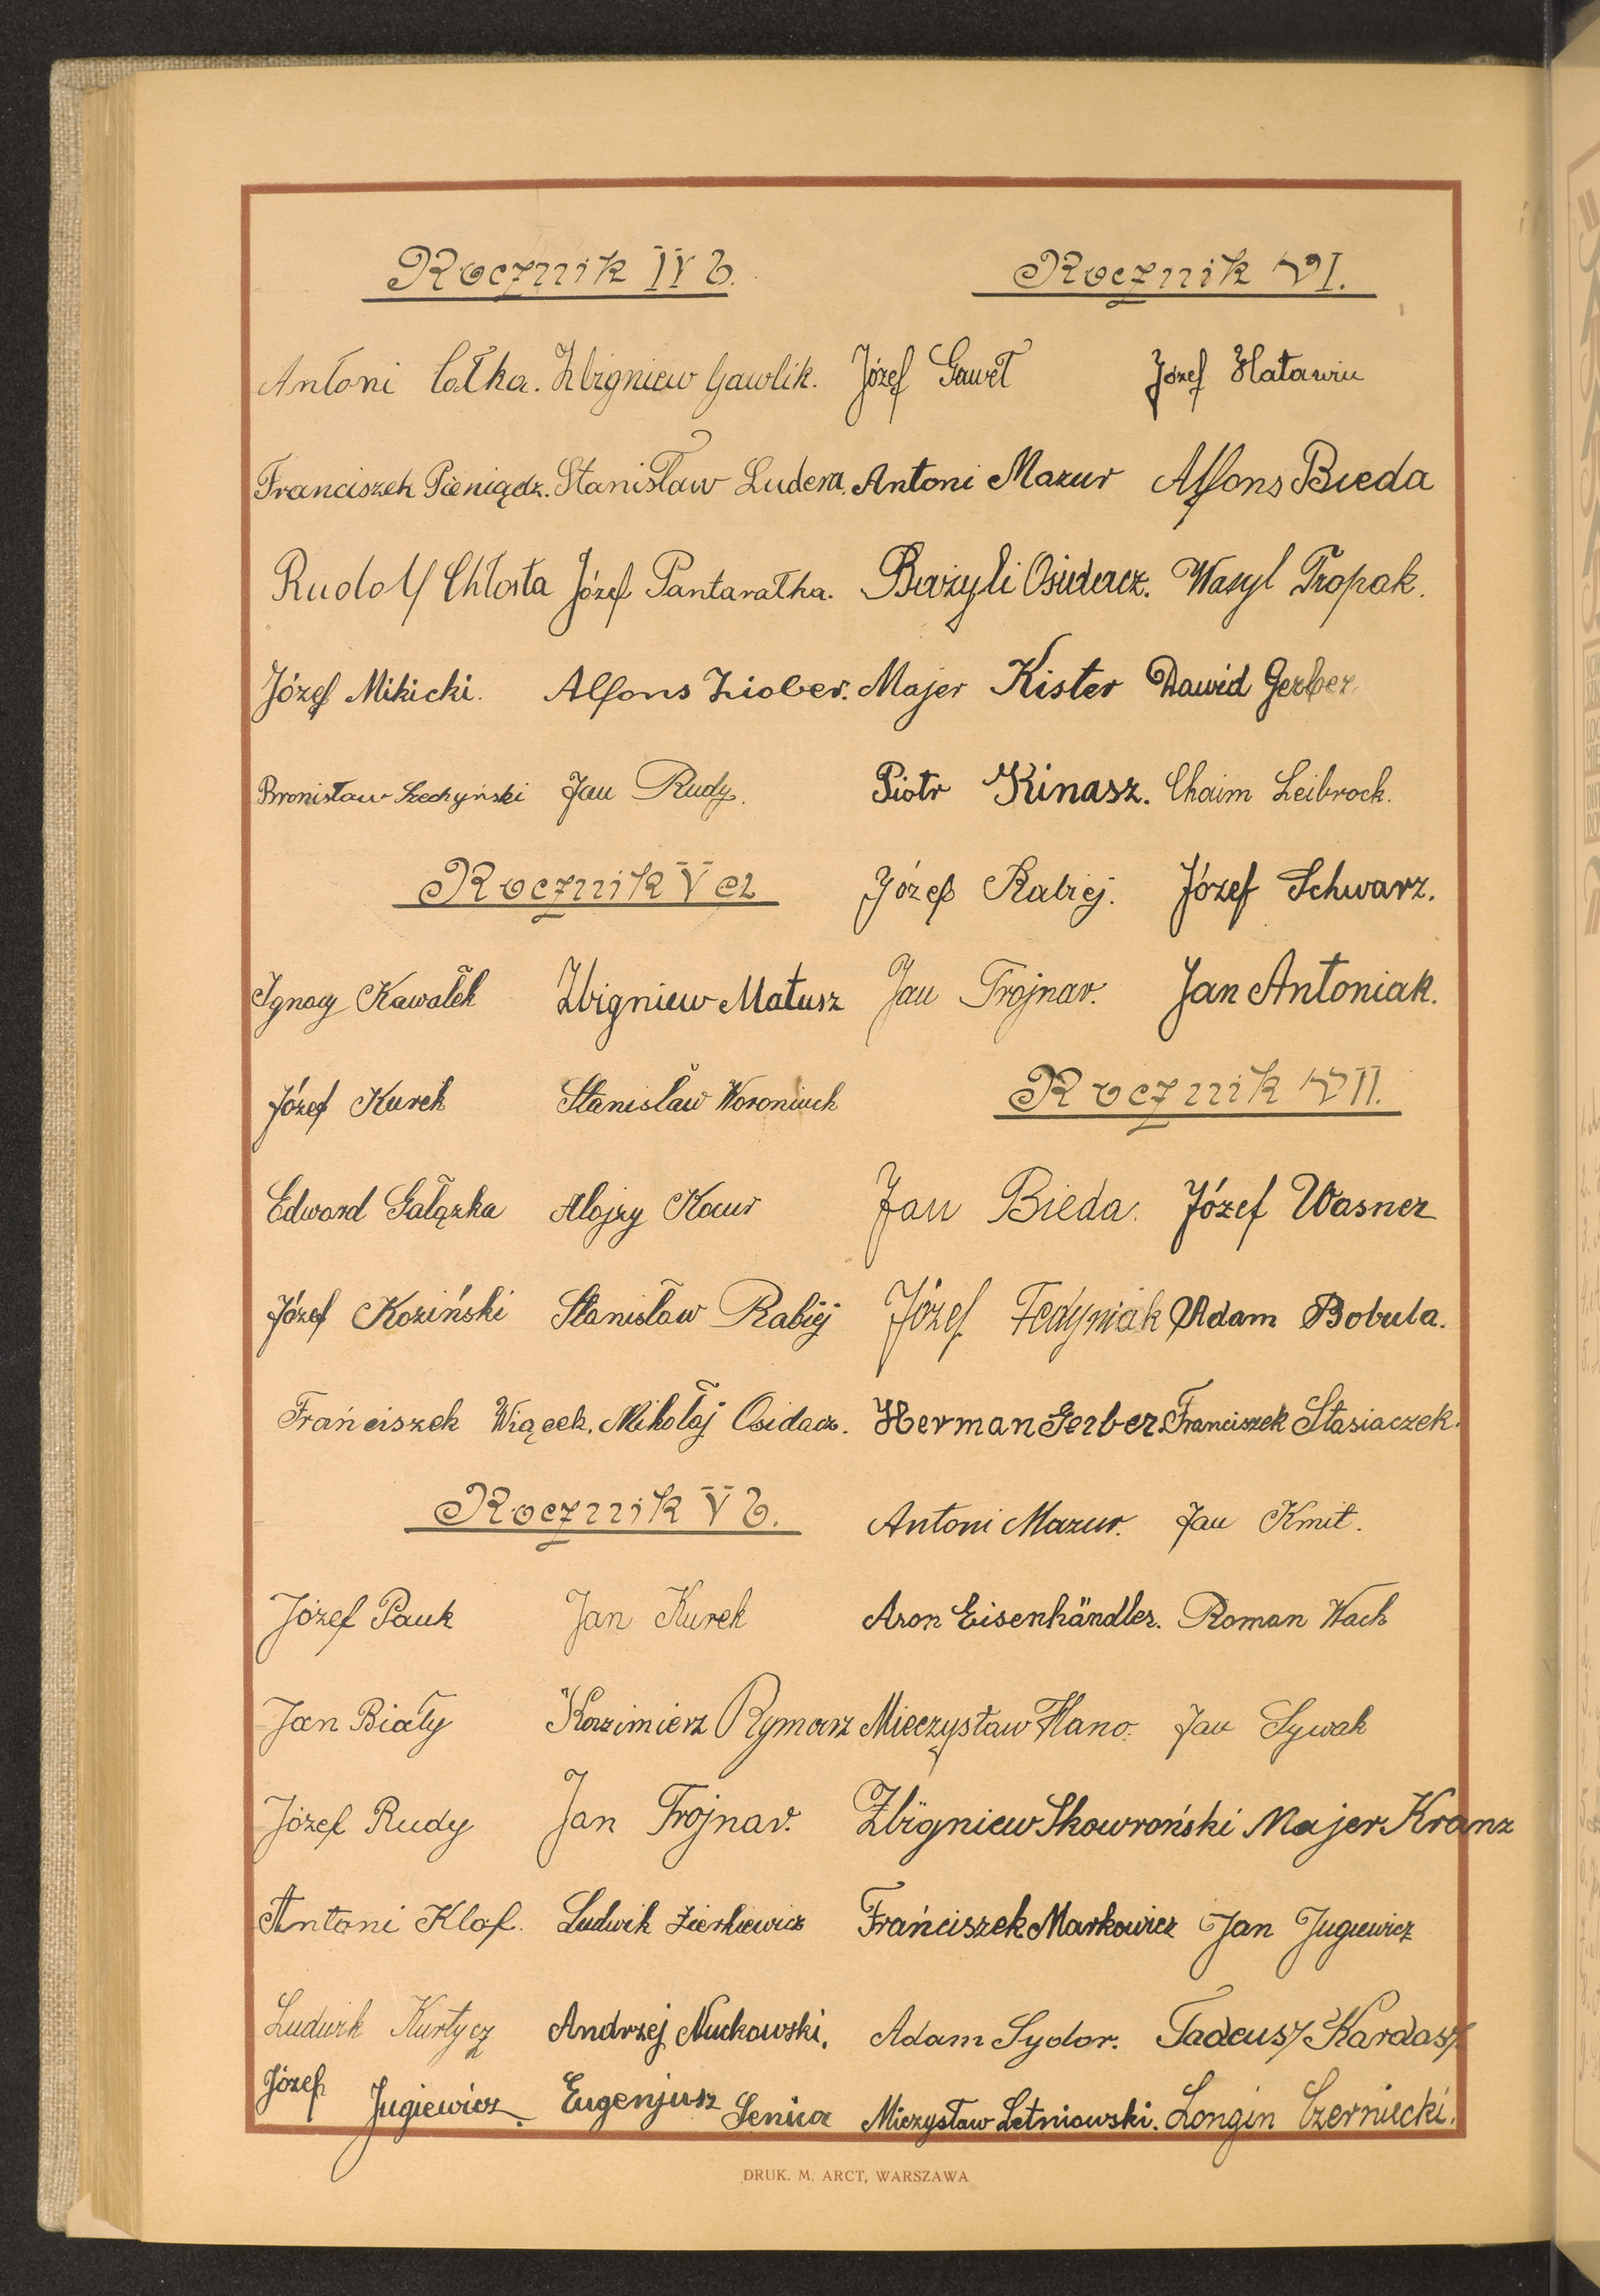 Rocznik IV b.
Antoni Całka. Zbigniew Gawlik.
Franciszek Pieniądz. Stanisław Ludera.
Rudolf Chłosta Józef Pantarałka.
Józef Mikicki. Alfons Ziober.
Bronisław Szechyński Jan Rudy.
Rocznik V a
Ignacy Kawałek Zbigniew Matusz
Józef Kurek Stanisław Woroniuch
Edward Gałązka Alojzy Kocur
Józef Koziński Stanisław Rabiej
Frańciszek Wiącek. Mikołaj Osidacz.
Rocznik V b.
Józef Pauk Jan Kurek
Jan Biały Kazimierz Rymarz
Józef Rudy Jan Trojnar.
Antoni Klaf. Ludwik Zierkiewicz
Ludwik Kurtycz Andrzej Nuckowski.
Józef Jugiewicz. Eugenjusz Senica
Rocznik VI.
Józef Gaweł Józef
Antoni Mazur Alfons Bieda
Bazyli Osidacz. Wasyl Tropak.
Majer Kister Dawid Gerber
Piotr Kinasz. Chaim Leibrock.
Józef Rabiej. Józef Schwarz.
Jan Trojnar. Jan Antoniak.
Rocznik VII.
Jan Bieda. Józef Wasner
Józef Fedyniak Adam Bobula.
Herman Gerber Franciszek Stasiaczek.
Antoni Mazur. Jan Kmit.
Aron Eisenhändler. Roman Wach
Mieczysław Hano. Jan Sywak
Zbigniew Skowroński Majer Kranz
Frańciszek Markowicz Jan Jugiewicz
Adam Sydor. Tadeusz Kardasz.
Miezysław Letniowski. Longin Czerniecki.
DRUK. M. ARCT, WARSZAWA